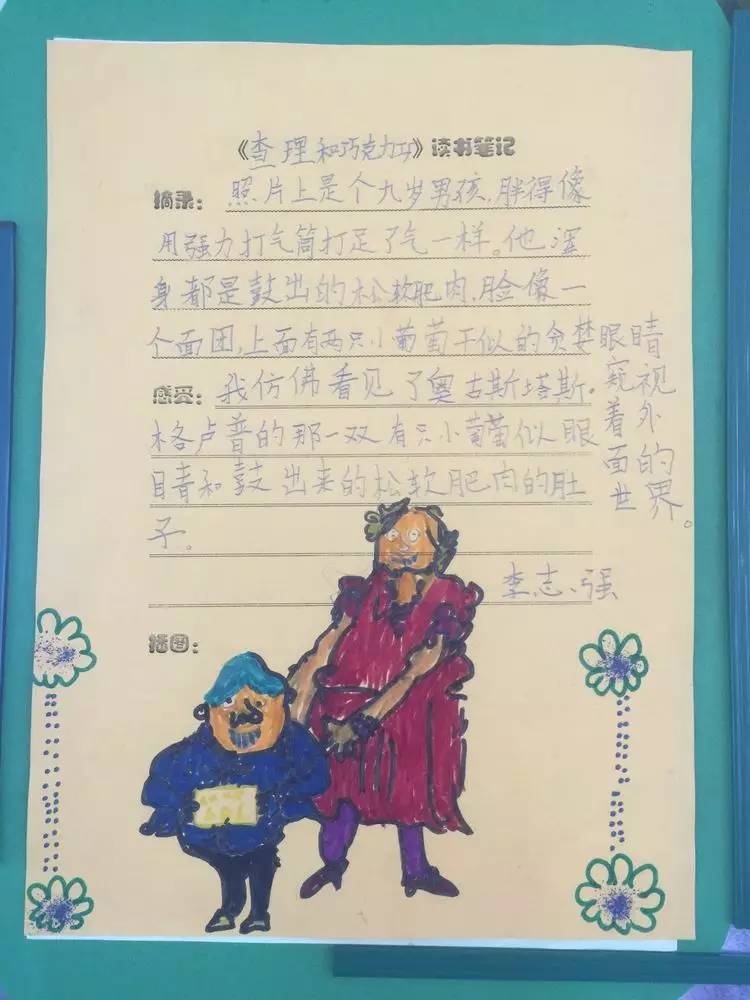 《查理和巧克力工》读书笔记
摘录：照片上是个九岁男孩，胖得像
用强力打气筒打足了气一样。他浑
身都是鼓出的松软肥肉，脸像一
个面团，上面有两只小葡萄干似的贪婪眼睛
窥视
着外
面的
世界。
感受：我仿佛看见了奥古斯塔斯。
格卢普的那一双有只小葡萄似眼
睛和鼓出来的松软肥肉的肚
子。
李志强
插图：